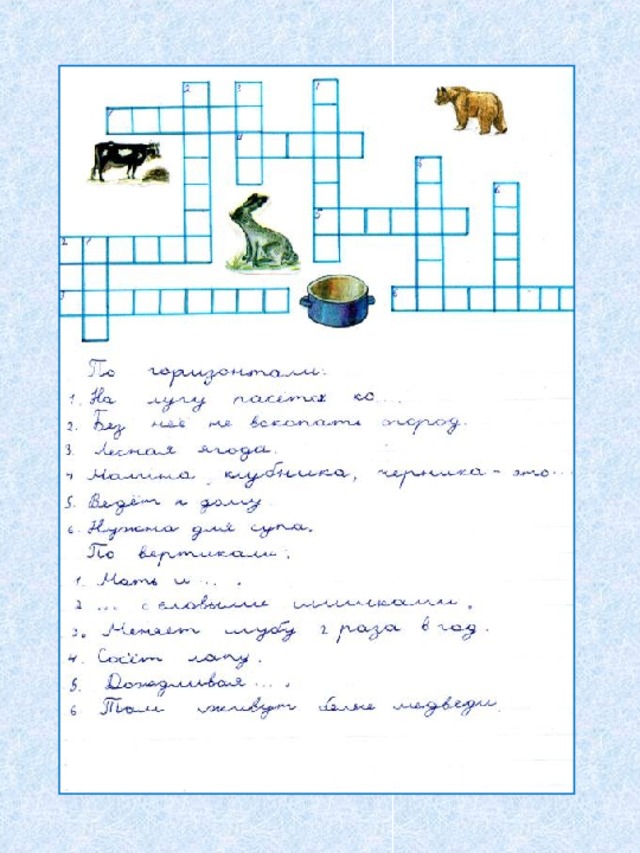 По горизонтали:
1. На лугу пасётся ко...
2. Без неё не вскопать огород.
3. Лесная ягода.
4 Малина, клубника, черника - это...
5. Ведёт к дому
6. Нужна для супа.
По вертикали:
1. Мать и ... .
2 ... с еловыми шишками.
3. Меняет шубу 2 раза в год.
4. Сосёт лапу.
5. Дождливая ... .
6 Там живут белые медведи.